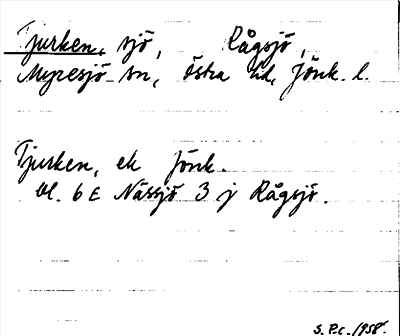 Tjurken, sjö, Rågsjö,
Myresjö sn, Östra hd, Jönk. l.
Tjurken, ek Jönk.
bl. 6 E Nässjö 3 j Rågsjö.
S. P:c. 1958.